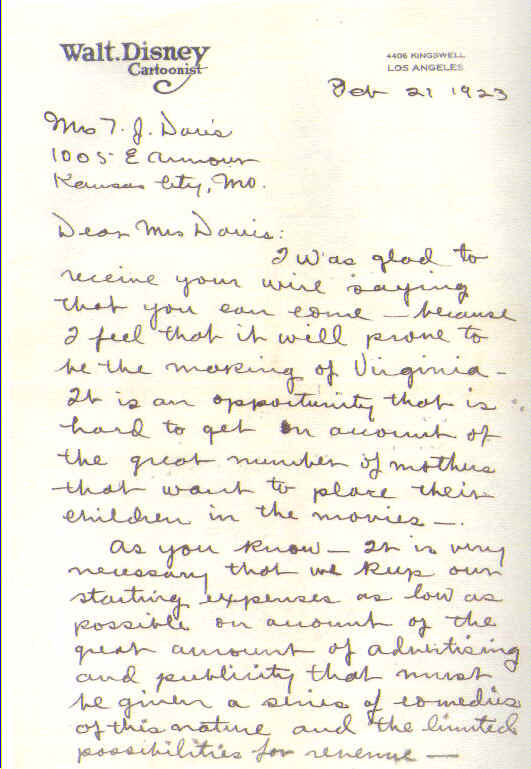 Walt. Disney
Cartoonist
4406 KINGSWELL
LOS ANGELES
Feb 21 1923
Mrs T. J. Davis
1005 E Armour
Kansas City, Mo.
Dear Mrs Davis:
I was glad to
receive your wire saying
that you can come — because
I feel that it will prove to
be the making of Virginia -
It is an opportunity that is
hard to get on account of
the great number of mothers
that want to place their
children in the movies —.
As you know — It is very
necessary that we keep our
starting expenses as low as
possible on account of the
great amount of advertising
and publicity that must
be given a series of comedies
of this nature and the limited
possibilities for revenue —